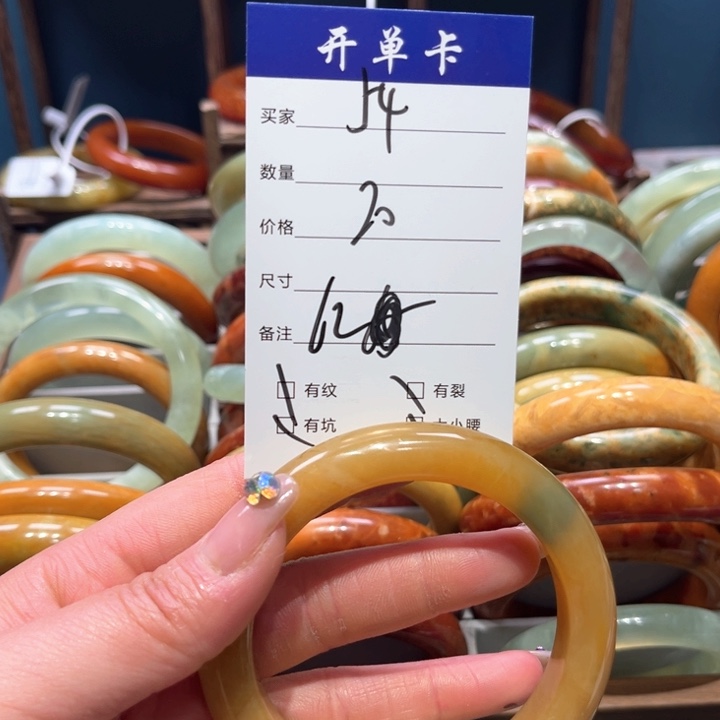 开单卡
买家 54
数量
价格 20
尺寸
备注 62
有纹 有裂
有坑 大小腰